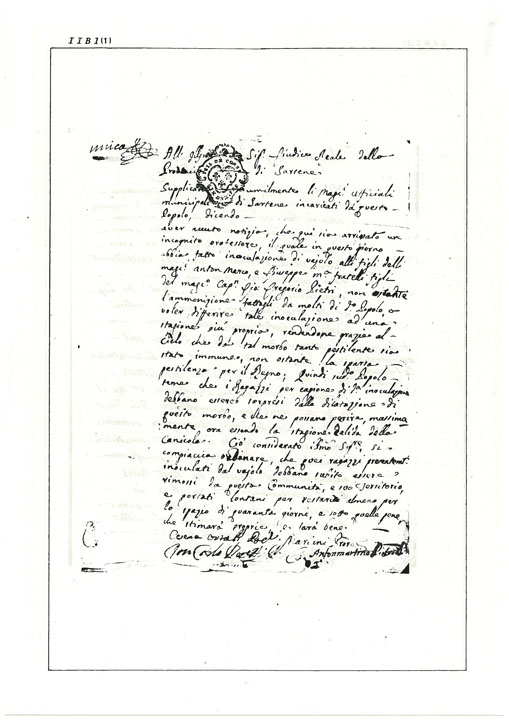 IIB1(1)
unica
All' Sig.r Giudice Reale della
Provincia di Sartene
Supplicano umilmente li Mag.ci ufficiali
municipali di Sartene incaricati da questo
Popolo, dicendo
aver avuto notizia, che qui sia arrivato un
incognito professore, il quale in questo giorno
abbia fatto inoculazione di vajolo alli figli delli
mag.ci Anton Marco, e Giuseppe m.a fratelli figli
del mag.co Cap.o Gio: Gregorio Pietri, non ostante
l'ammonizione fattagli da molti di d.o Popolo, a
voler differire tale inoculazione ad una
stagione più propria, rendendone grazie al
Cielo che da tal morbo tanto pestilente sia
stato immune, non ostante la sparsa
pestilenza per il Regno; Quindi sud.o Popolo
teme che i Ragazzi per cagione di d.a inoculazione
debbano essere sorpresi dalla dilatazione di
questo morbo, e che ne possano perire, massima
mente ora essendo la stagione calida della
Canicola. Ciò considerato Ill.mo Sig.re, si
compiaccia ordinare, che quei ragazzi
inoculati dal vajolo debbano subito essere
rimossi da questa Communità, e suo Territorio,
e portati lontani per restarvi almeno per
lo spazio di quaranta giorni, e sotto quelle pene
che stimarà proprie, e sarà bene
Antonmartino